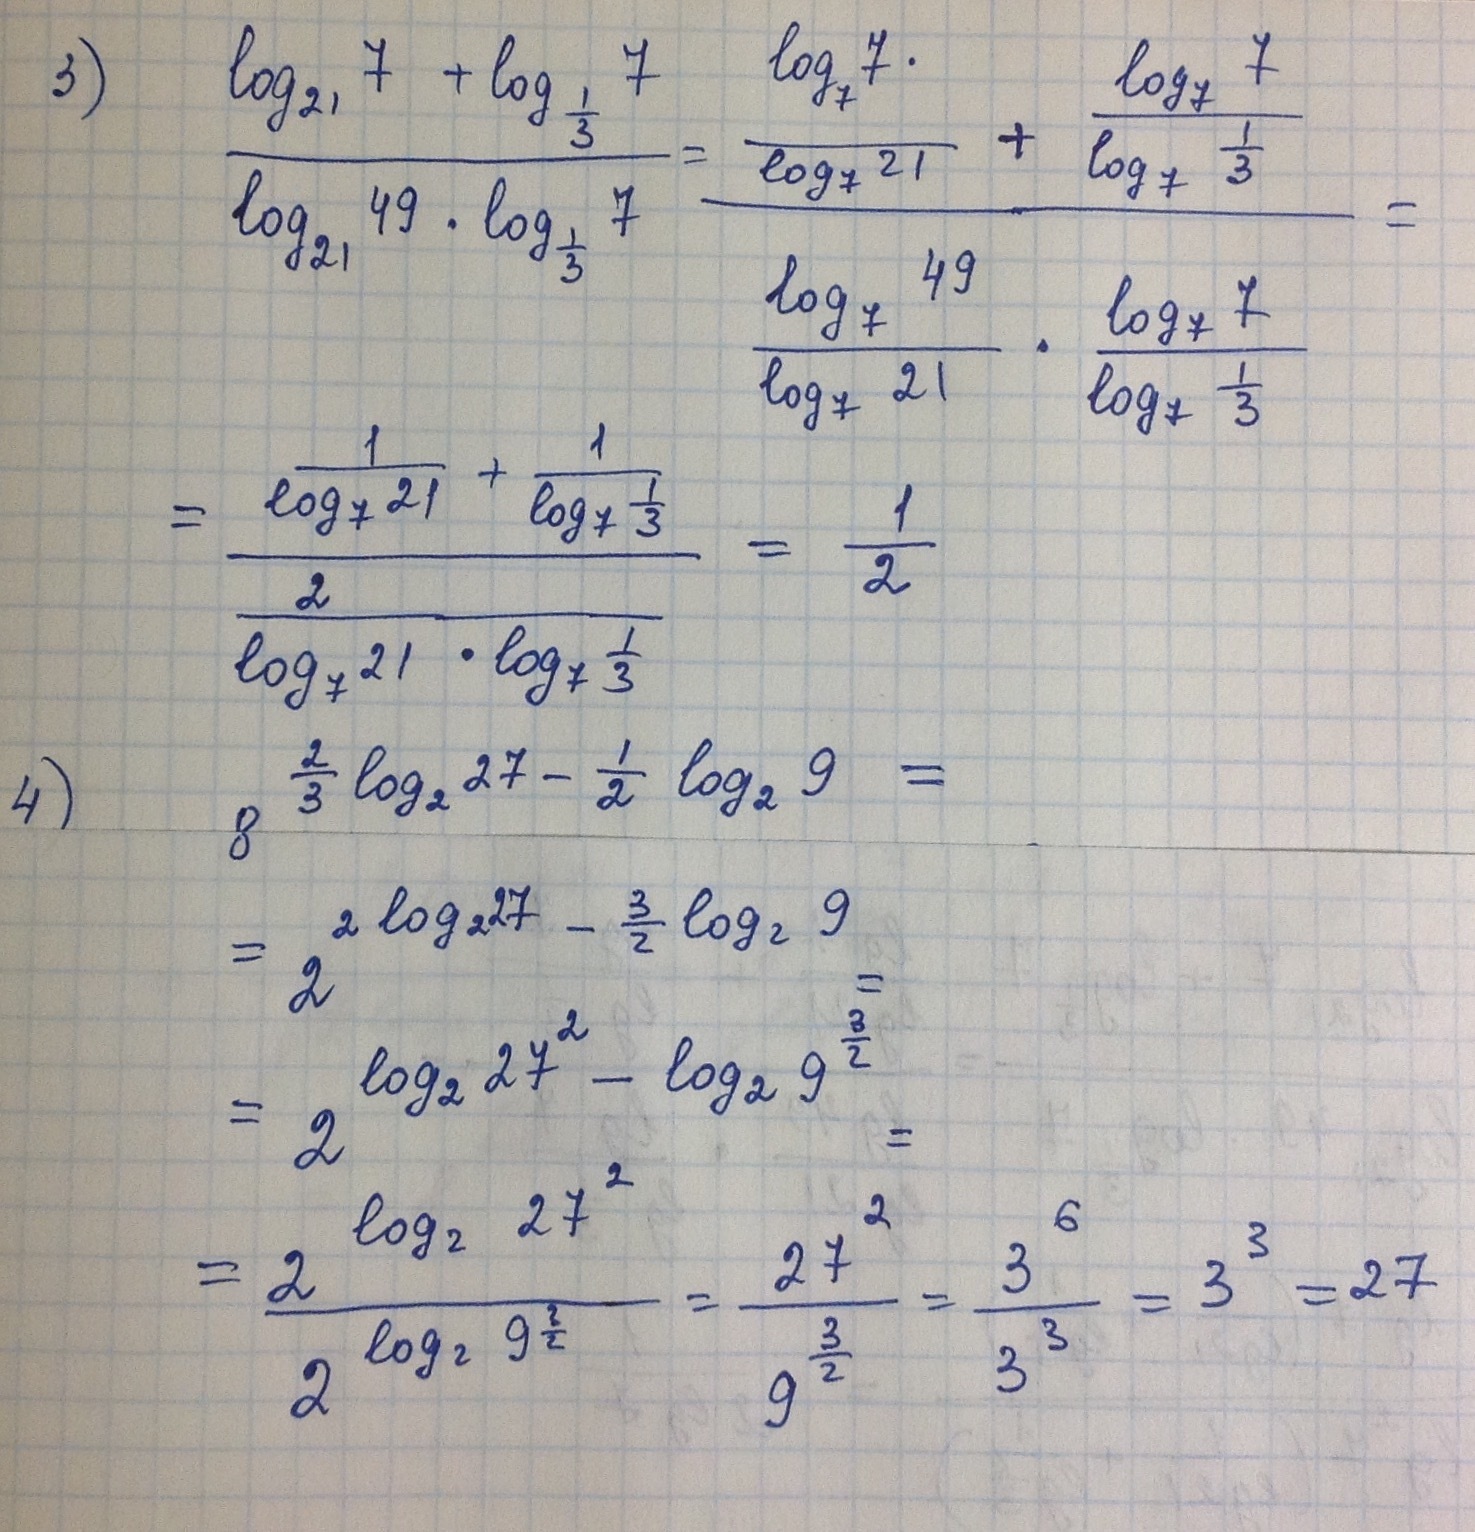 3) \frac{\log_{21} 7 + \log_{\frac{1}{3}} 7}{\log_{21} 49 \cdot \log_{\frac{1}{3}} 7} = \frac{\frac{\log_7 7 \cdot}{\log_7 21} + \frac{\log_7 7}{\log_7 \frac{1}{3}}}{\frac{\log_7 49}{\log_7 21} \cdot \frac{\log_7 7}{\log_7 \frac{1}{3}}} =
= \frac{\frac{1}{\log_7 21} + \frac{1}{\log_7 \frac{1}{3}}}{\frac{2}{\log_7 21 \cdot \log_7 \frac{1}{3}}} = \frac{1}{2}
4) 8^{\frac{2}{3} \log_2 27 - \frac{1}{2} \log_2 9} =
= 2^{2 \log_2 27 - \frac{3}{2} \log_2 9} =
= 2^{\log_2 27^2 - \log_2 9^{\frac{3}{2}}} =
= \frac{2^{\log_2 27^2}}{2^{\log_2 9^{\frac{3}{2}}}} = \frac{27^2}{9^{\frac{3}{2}}} = \frac{3^6}{3^3} = 3^3 = 27